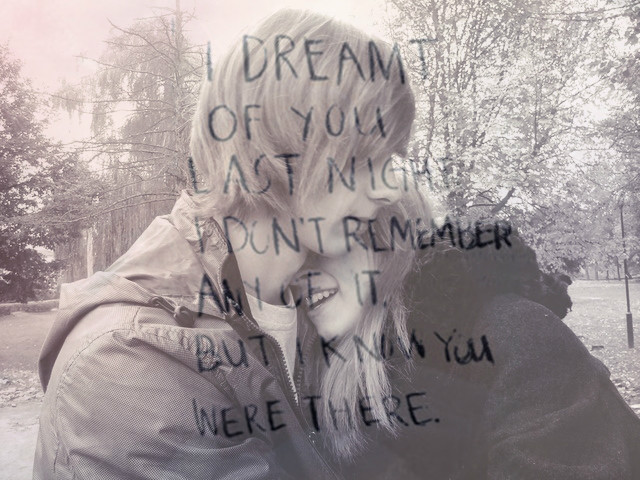 I DREAMT
OF YOU
LAST NIGHT
I DON'T REMEMBER
ANY OF IT.
BUT I KNOW YOU
WERE THERE.